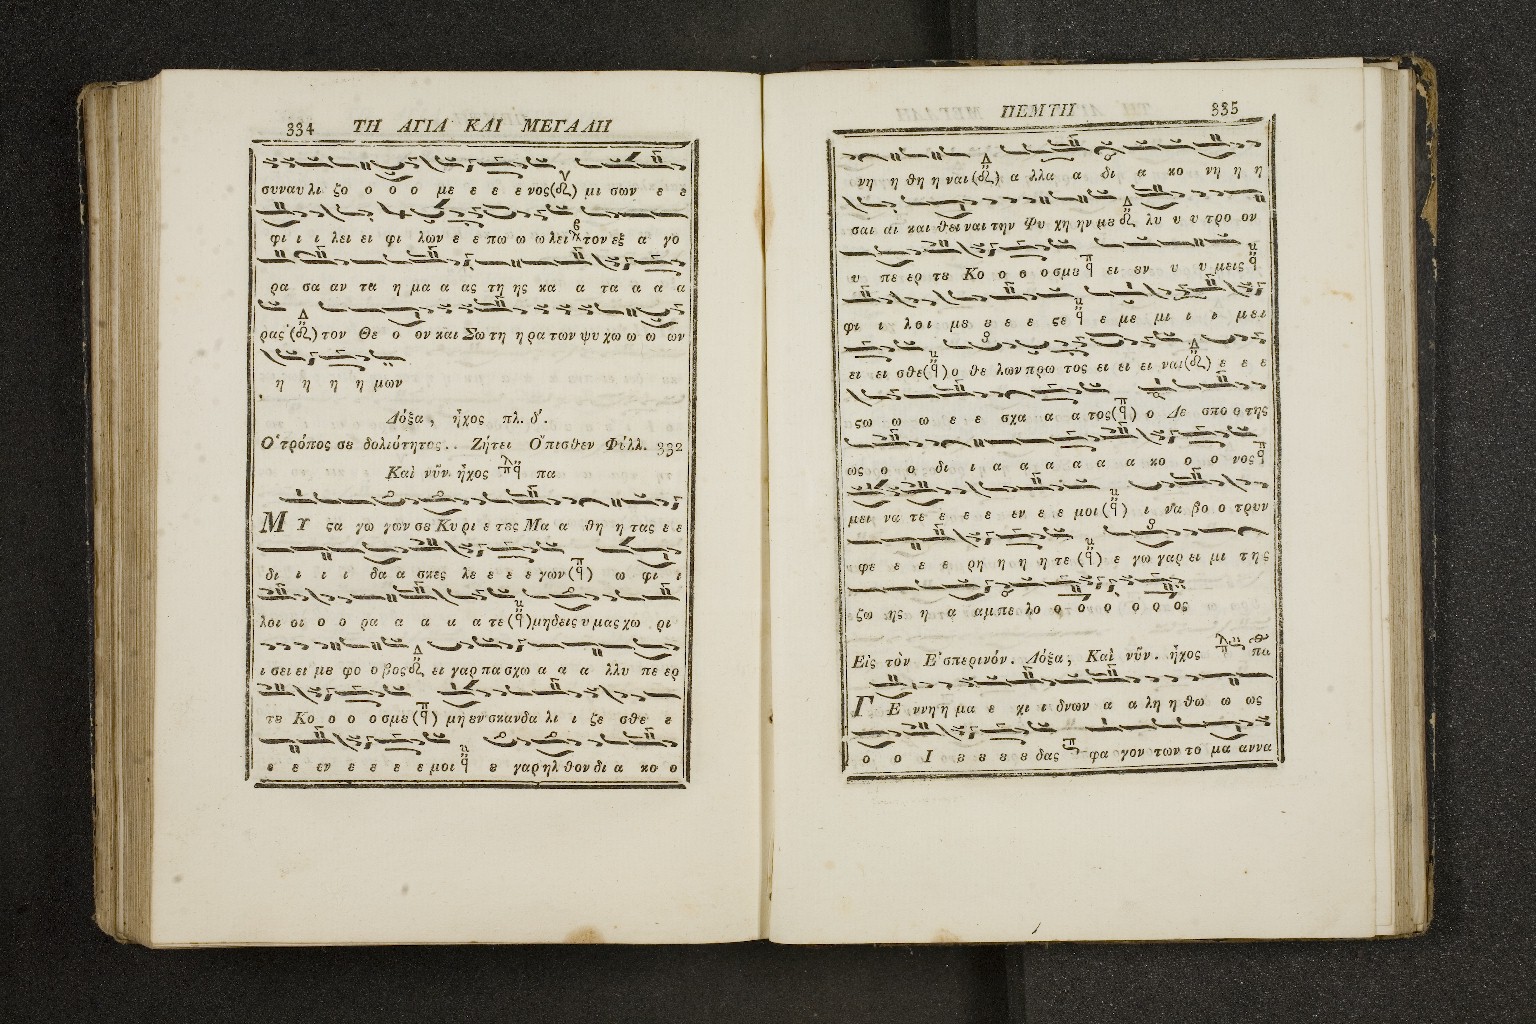 334 ΤΗ ΑΓΙΑ ΚΑΙ ΜΕΓΑΛΗ
συναυ λι ζο ο ο ο με ε ε ε νος(δι) μι σων ε ε
φι ι ι λει ει φι λων ε ε πω ω ω λει τον εξ α γο
ρα σα αν τα η μα α ας τη ης κα α τα α α α
ρας (δι) τον Θε ο ον και Σω τη η ρα των ψυ χω ω ω ων
η η η η μων
Δόξα, ἦχος πλ. δ'.
Ο' τρόπος σȣ δολιότητος.. Ζήτει Ο'πισθεν Φύλλ. 332
Καὶ νῦν. ἦχος πα
ΜΥ ϛα γω γων σȣ Κυ ρι ε τȣς Μα α θη η τας ε ε
δι ι ι ι δα α σκες λε ε ε ε γων(π) ω φι ι
λοι οι ο ο ρα α α α α τε (q) μηδεις υ μας χω ρι
ι σει ει μȣ φο ο βος δι ει γαρ πα σχω α α α λλυ πε ερ
τȣ Κο ο ο ο σμȣ (π) μη ȣν σκανδα λι ι ζε σθε ε
ε ε εν ε ε ε ε μοι q ȣ γαρ ηλ θον δι α κο ο
ΠΕΜΤΗ 335
νη η θη η ναι (δι) α λλα α δι α κο νη η η
σαι αι και θει ναι την Ψυ χη ην μȣ δι λυ υ υ τρο ον
υ πε ερ τȣ Κο ο ο ο σμȣ ει ȣν υ υ μεις
φι ι λοι μȣ ȣ ε ε ϛε ε με μι ι ι μει
ει ει σθε(q) ο θε λων πρω τος ει ει ει ναι(δι) ε ε ε
ϛω ω ω ε ε σχα α α τος(π) ο Δε σπο ο της
ως ο ο δι ι α α α α α α κο ο ο νος
μει να τε ε ε ε εν ε ε μοι (q) ι να βο ο τρυν
φε ε ε ε ρη η η η τε (q) ε γω γαρ ει μι της
ζω ης η α αμ πε λο ο ο ρ ο ρ ο ος
Εἰς τὸν Ε'σπερινόν. Δόξα, Καὶ νῦν. ἦχος πα
ΓΕ ννη η μα ε χι ι δνων α α λη η θω ω ως
ο ο Ι ȣ ȣ ȣ ȣ δας φα γον των το μα αννα